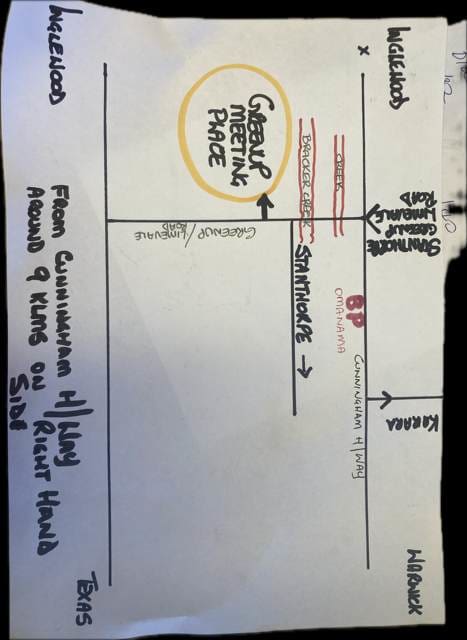 INGLEWOOD
x
INGLEWOOD
STANTHORPE
GREENUP
LIMEVALE
ROAD
KARARA
WARWICK
CREEK
BP
OMANAMA
CUNNINGHAM H/WAY
BRACKER CREEK
STANTHORPE →
GREENUP
MEETING
PLACE
GREENUP/LIMEVALE
ROAD
INGLEWOOD
TEXAS
FROM CUNNINGHAM H/WAY
AROUND 9 KLMS ON RIGHT HAND
SIDE